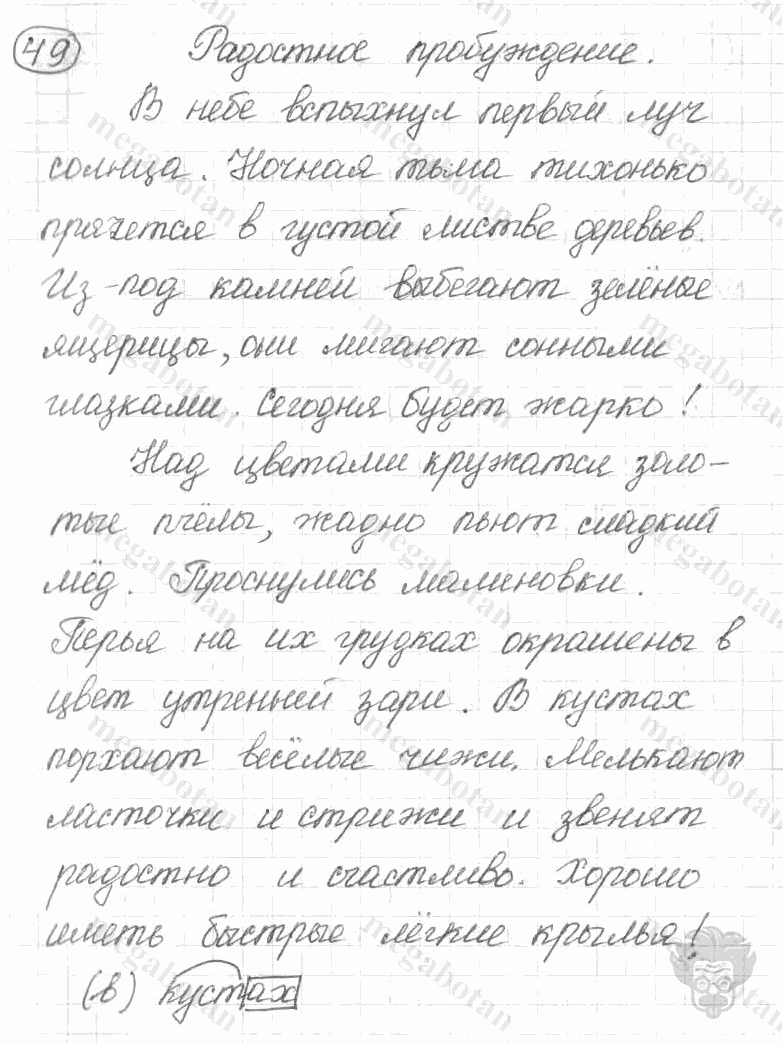 49 Радостное пробуждение.
В небе вспыхнул первый луч
солнца. Ночная тьма тихонько
прячется в густой листве деревьев.
Из-под камней выбегают зелёные
ящерицы, они мигают сонными
глазками. Сегодня будет жарко!
Над цветами кружатся золо-
тые пчёлы, жадно пьют сладкий
мёд. Проснулись малиновки.
Перья на их грудках окрашены в
цвет утренней зари. В кустах
порхают весёлые чижи. Мелькают
ласточки и стрижи и звенят
радостно и счастливо. Хорошо
иметь быстрые лёгкие крылья!
(в) кустах
megabotan